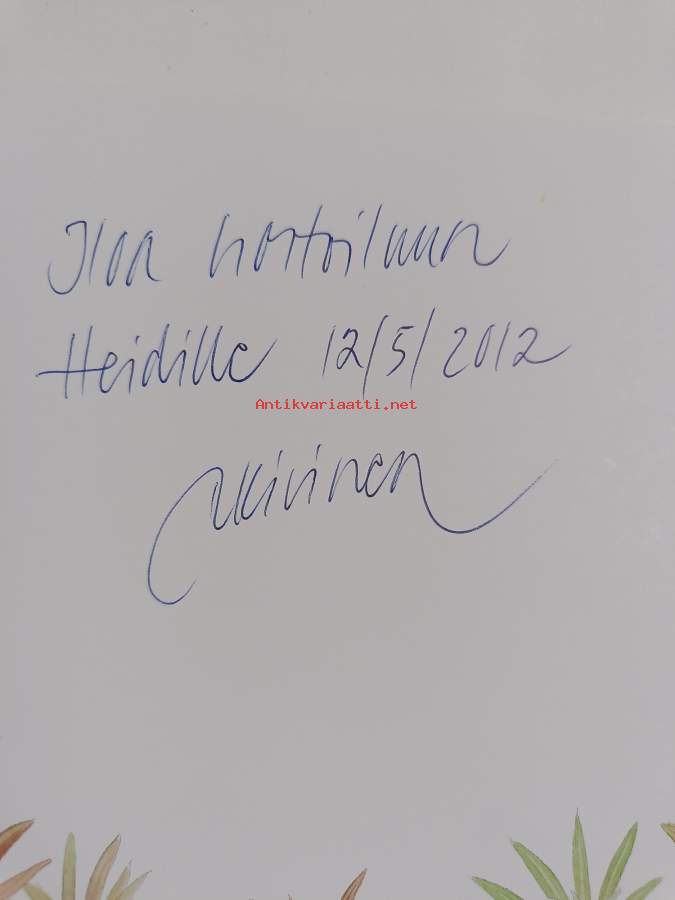 Iloa hortoiluun
Heidille 12/5/2012
Antikvariaatti.net